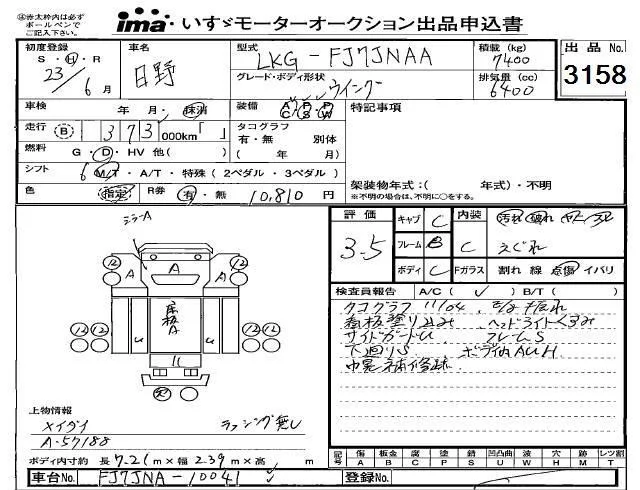 ㊟赤太枠内は必ず
ボールペンで
ご記入下さい。
ima いすゞモーターオークション出品申込書
初度登録 S・H・R 23年 6月
車名 日野
型式 LKG-FJ7JNAA
グレード・ボディ形状 ウイング
積載(kg) 7400
排気量(cc) 6400
出品No. 3158
車検 年 月・抹消
装備 A/C P/S P/W
特記事項
走行 B 373,000km「 」
タコグラフ 有・無 別体
( 年 月)
燃料 G・D・HV 他( )
シフト 6 M/T・A/T・特殊(2ペダル・3ペダル)
架装物年式:( 年式)・不明
※不明の場合は、不明に○をする。
色 指定 R券 有・無 10,810円
評価 3.5
キャブ C
フレーム B
ボディ C
内装 C
汚れ 破れ
えぐれ
Fガラス 割れ 線 点傷 イバリ
ミラーA
12 12
A A A
12 12
床板A
U U
12 12
検査員報告 A/C( ✓ ) B/T( )
タコグラフ 11/04
看板塗り込み ヘッドライトくすみ
サイドガードU フレームS
下回りS ボディ内AUH
巾晃補修跡
上物情報
メイダイ ラッシング無し
A-57188
ボディ内寸約 長7.21m×幅2.39m×高 m
記号 傷A 板金B 腐C 塗P 錆S 凹凸曲U 波W 穴H 跡M レンズ割T
車台No. FJ7JNA-10041
登録No.